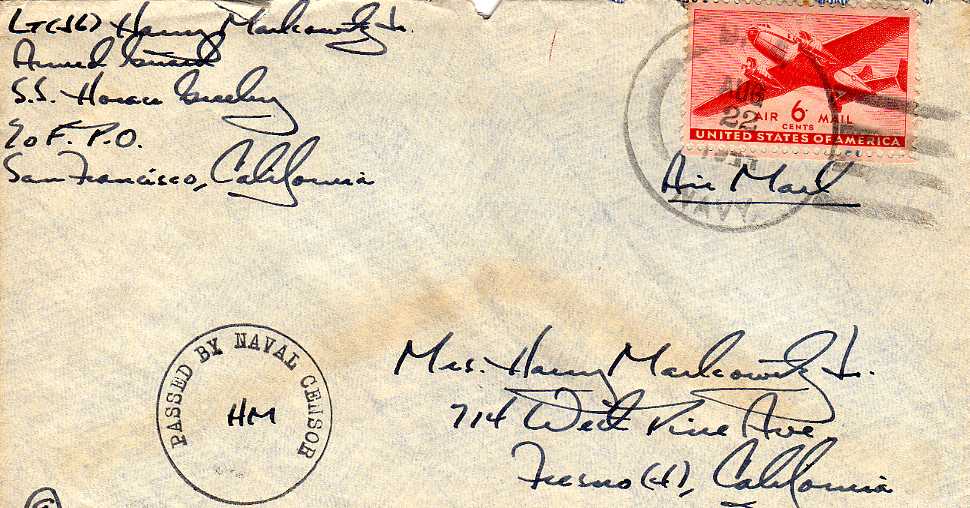 Lt(jg) Harry Markowitz Jr.
Armed Guard
S.S. Horace Greeley
c/o F.P.O.
San Francisco, California
AUG
22
NAVY
AIR 6 MAIL
CENTS
UNITED STATES OF AMERICA
Air Mail
PASSED BY NAVAL CENSOR
HM
Mrs. Harry Markowitz Jr.
714 West Pine Ave
Fresno (4), California